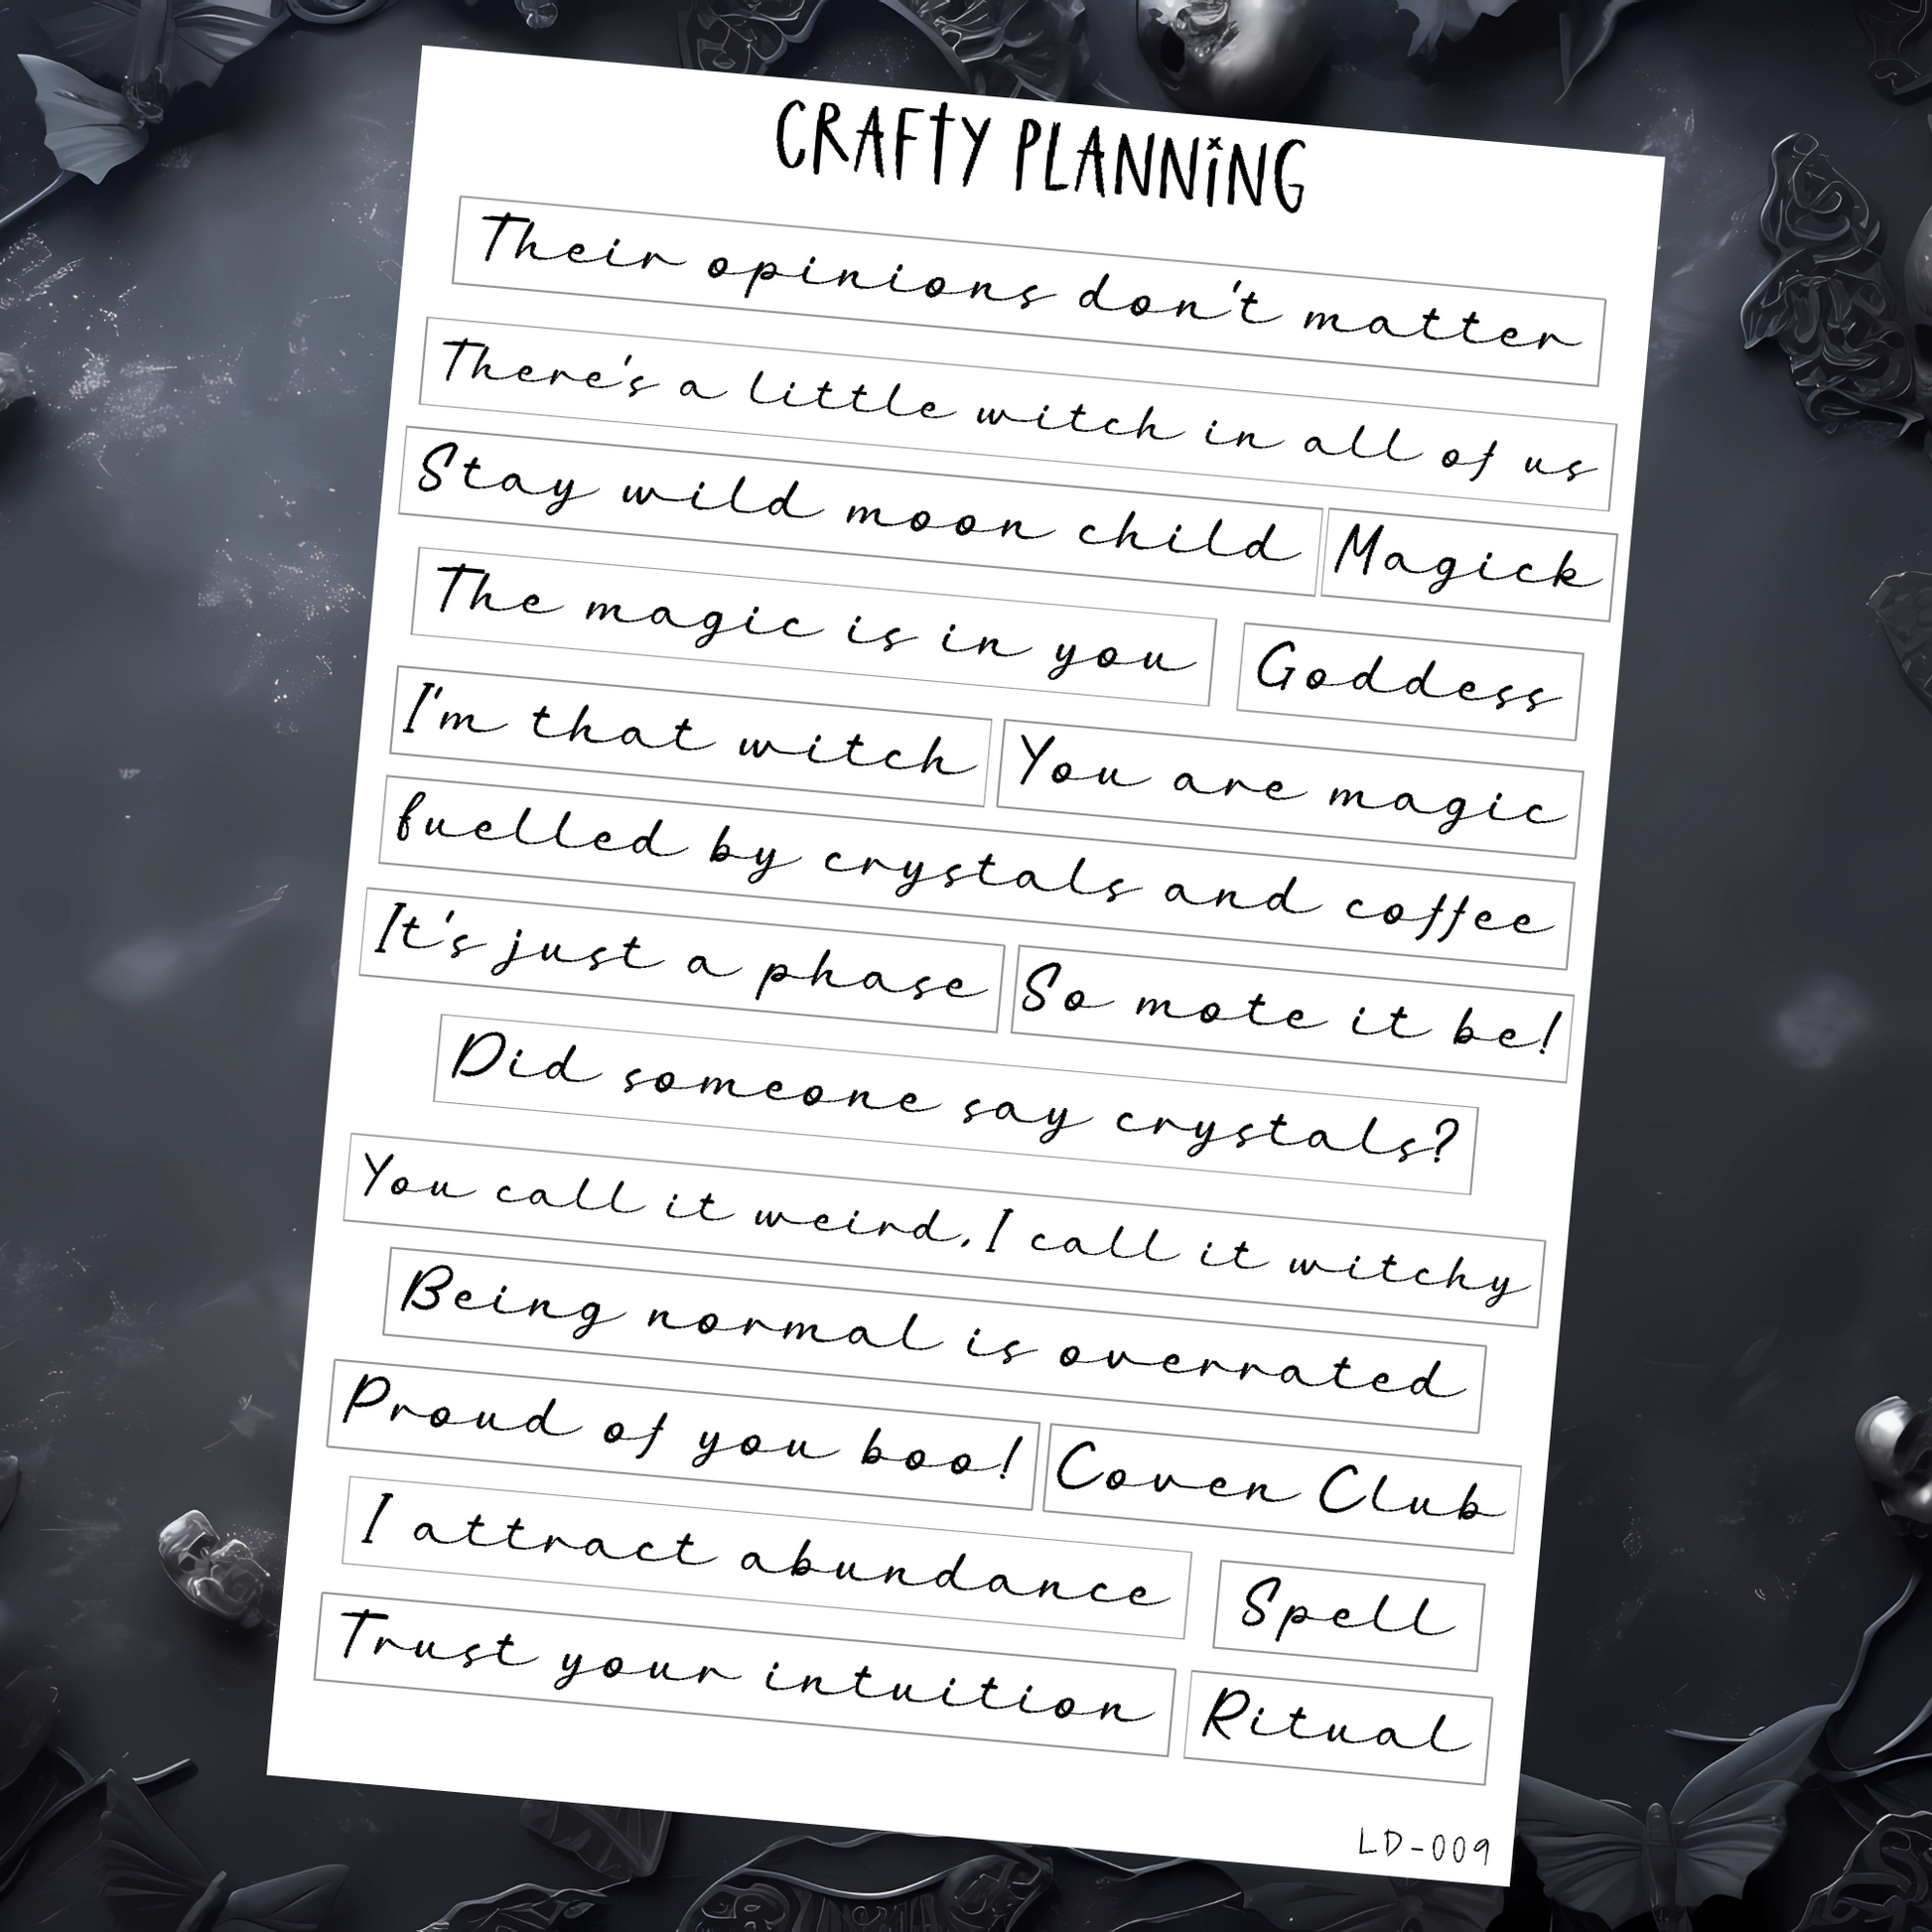 CRAFTY PLANNING
Their opinions don't matter
There's a little witch in all of us
Stay wild moon child Magick
The magic is in you Goddess
I'm that witch You are magic
fuelled by crystals and coffee
It's just a phase So mote it be!
Did someone say crystals?
You call it weird, I call it witchy
Being normal is overrated
Proud of you boo! Coven Club
I attract abundance Spell
Trust your intuition Ritual
LD-009